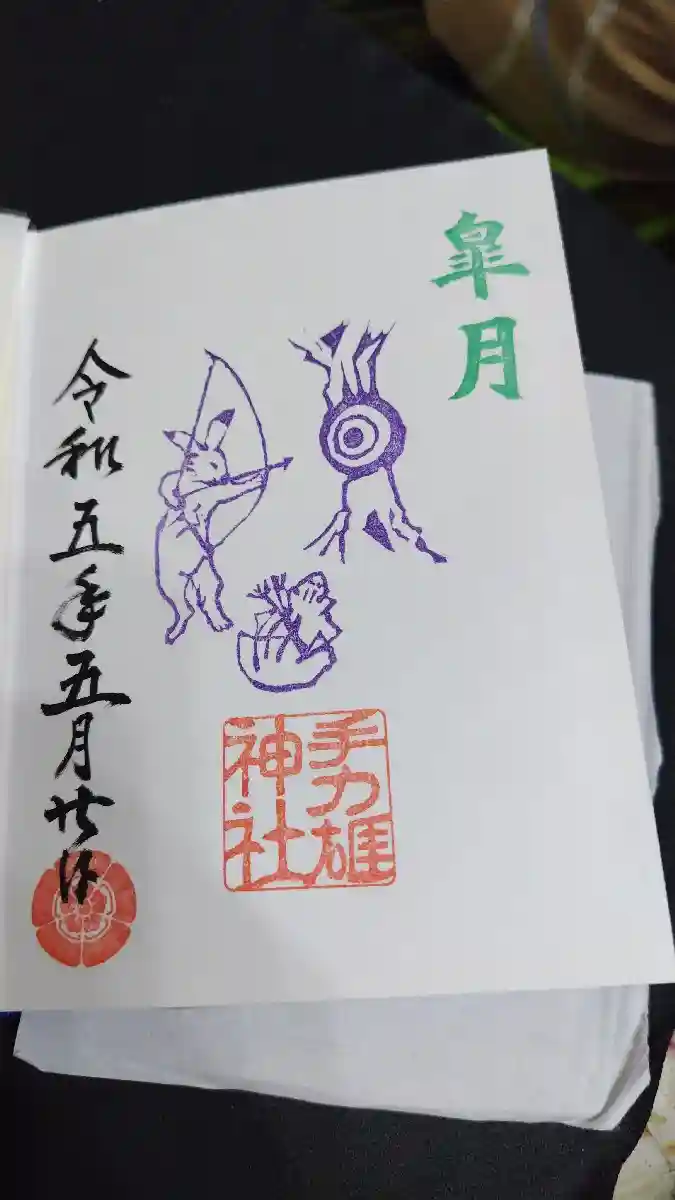 皐月
手力雄
神社
令和五年五月廿日